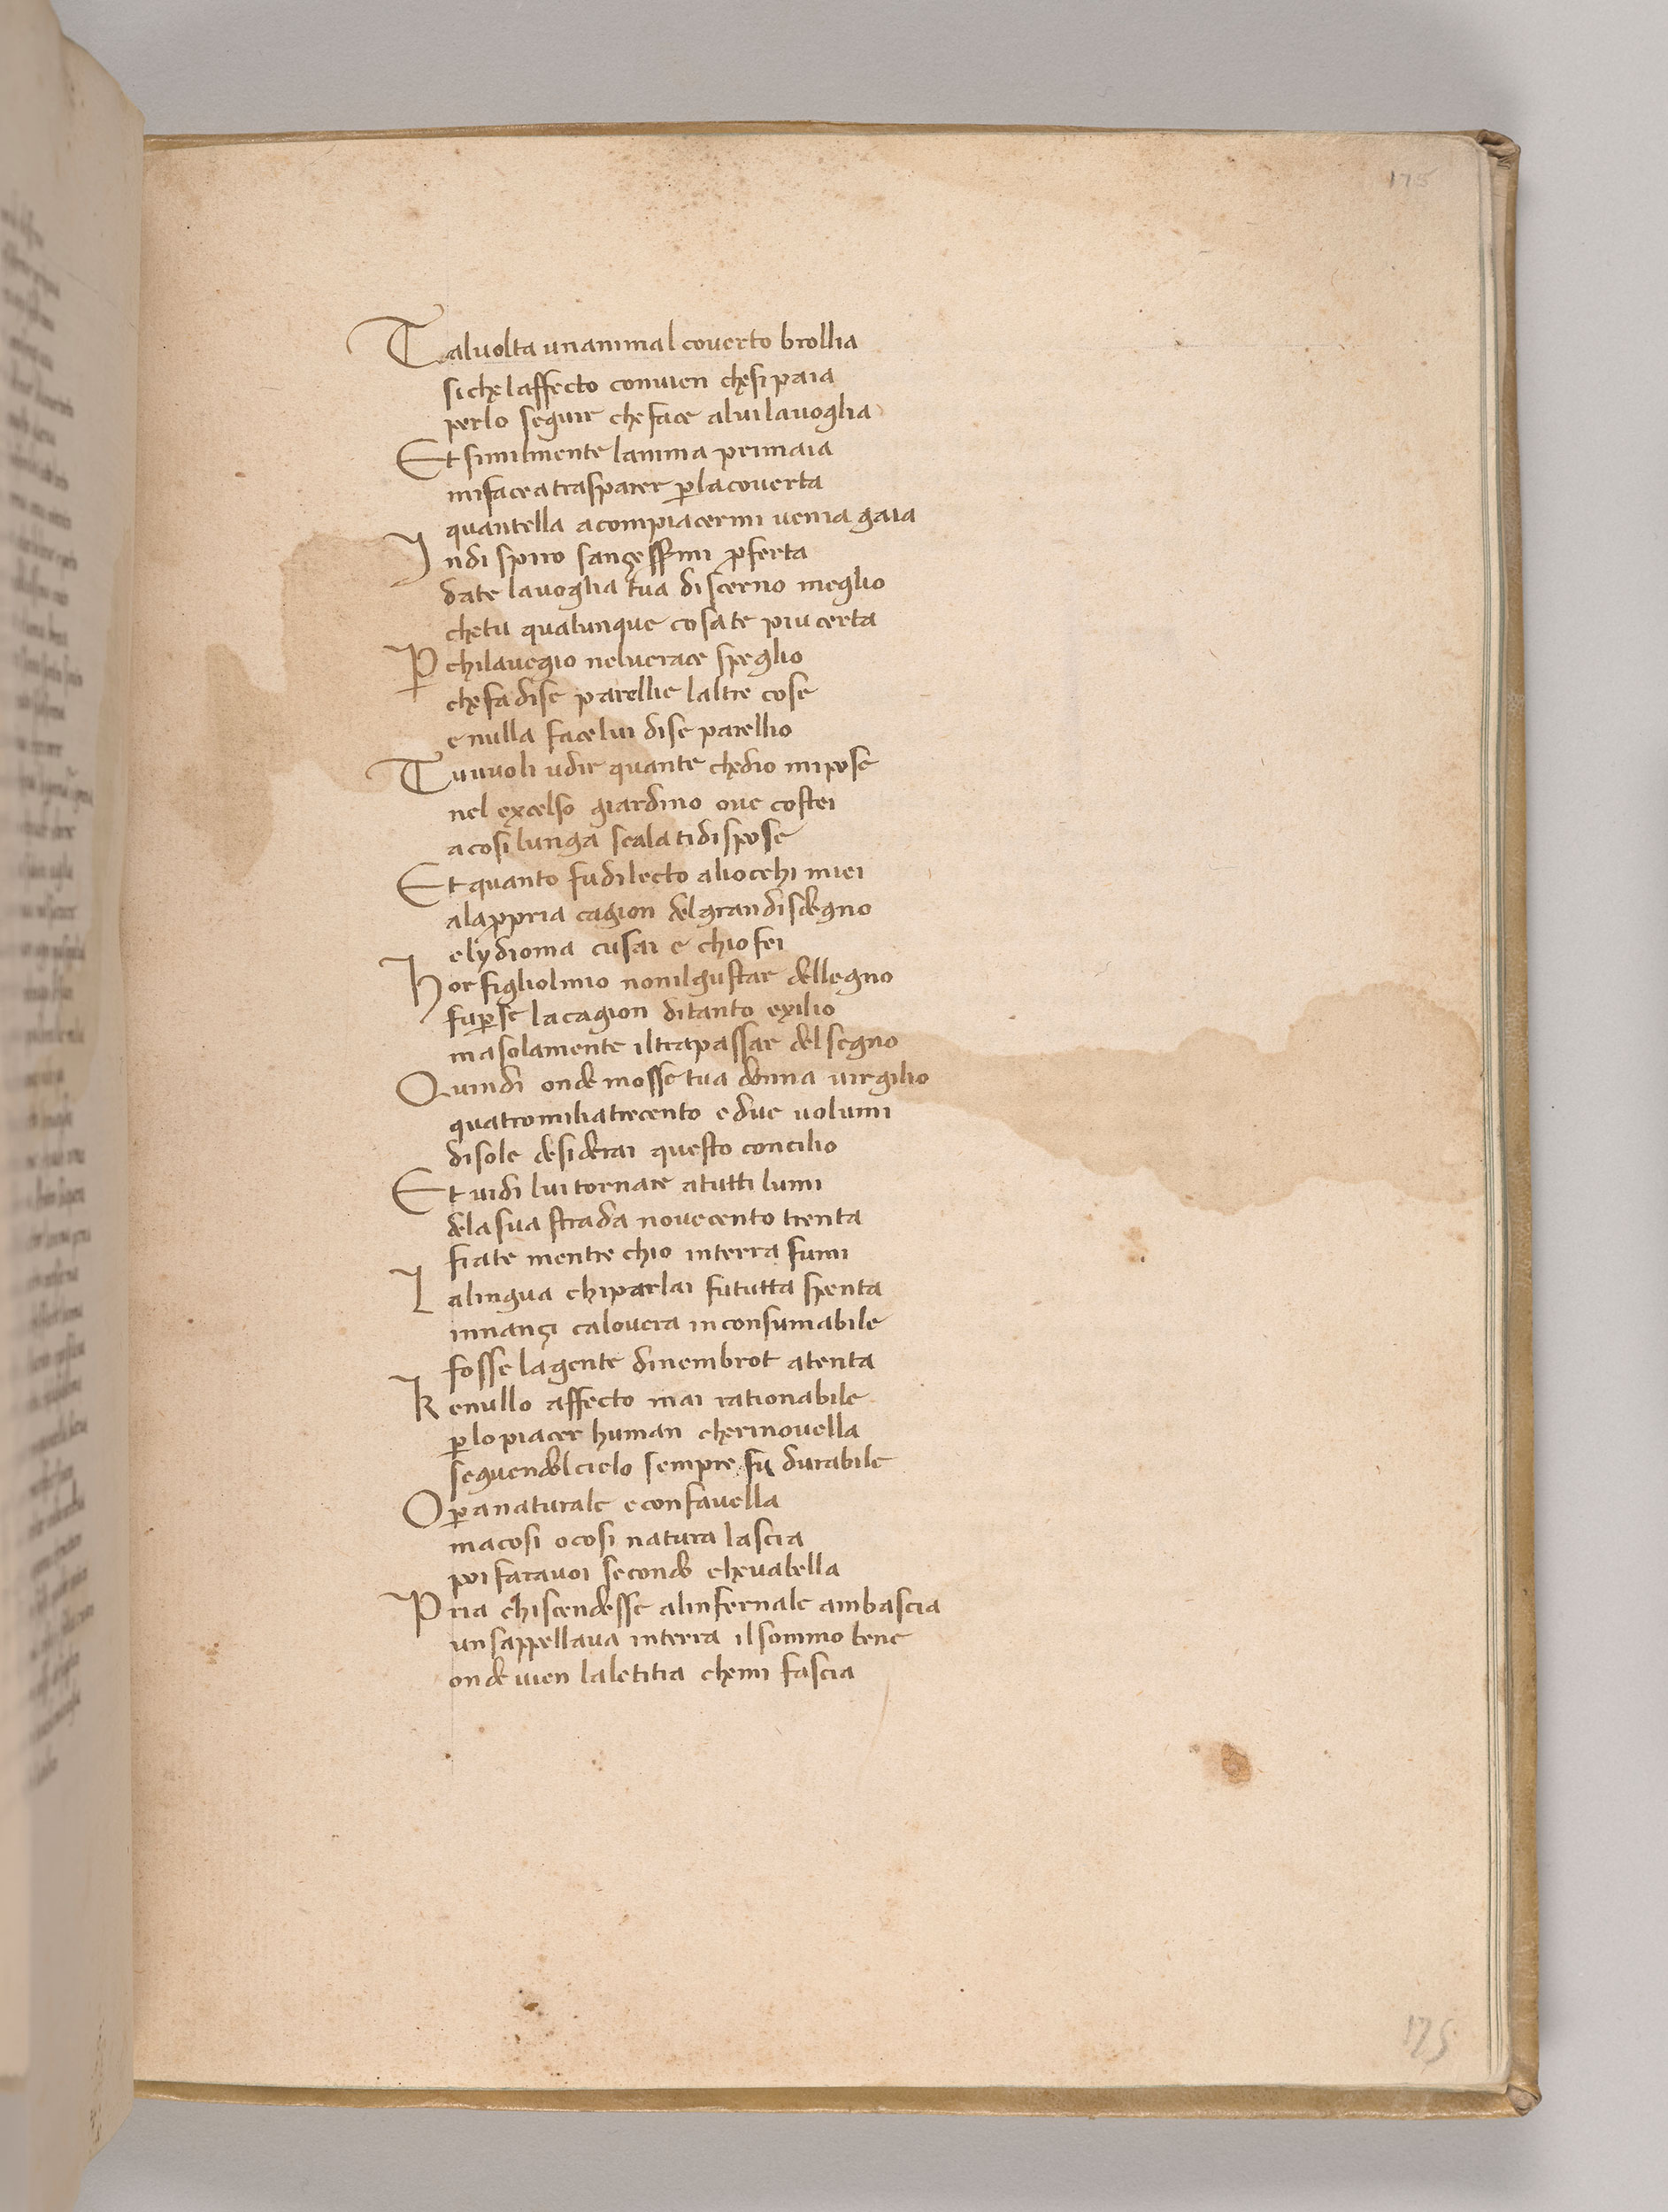 175
Talvolta unanimal coverto brollia
sichęlaffecto convien chęsipaia
perlo seguir cheface alvilavoglia
Et similmente lanima primaia
mifacea trasparer ꝑlacoverta
quantella acompiacermi venia gaia
Indi spiro sançessimi ꝓferta
date lavoglia tua discerno meglio
chetu qualunque cosate piu certa
Ꝑchilavegio nelverace speglio
chęfadise parellie laltre cose
e nulla facelui dise parellio
Tuvuoli udir quante chędio mipose
nel excelso giardino ove costei
acosi lunga scala tidispose
Et quanto fudilecto aliocchi miei
alaꝓpria cagion delgrandisdegno
elydioma cusai e chiofei
Hor figliolmio nonilgustar dellegno
fuꝑse lacagion ditanto exilio
masolamente iltrapassar delsegno
Quindi onde mosse tua donna virgilio
quatromiliatrecento edue volumi
disole desiderai questo concilio
Et vidi lui tornare atutti lumi
delasua strada novecento trenta
fiate mentre chio interra fumi
Lalingua chiparlai fututta spenta
innançi calovera inconsumabile
fosse lagente dinembrot atenta
Kenullo affecto mai rationabile
ꝑlopiacer human chęrinovella
seguendolcielo sempre fu durabile
Oꝑanaturale econfavella
macosi ocosi natura lascia
poi faravoi secondo chęvabella
Pria chiscendesse alinfernale ambascia
unsappellava interra ilsommo bene
onde vien laletitia chęmi fascia
175